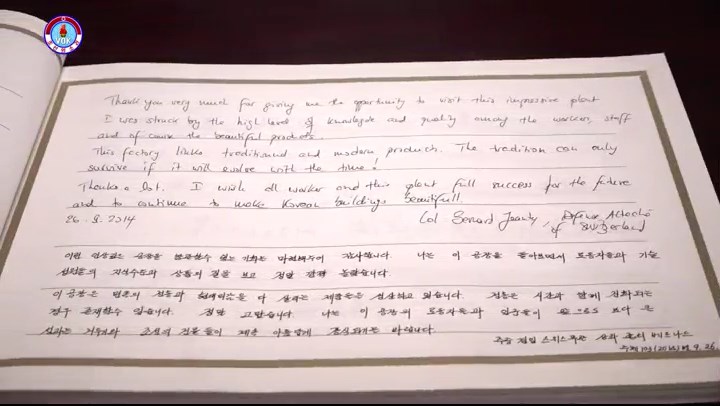 VOK
Thank you very much for giving me the opportunity to visit this impressive plant
I was struck by the high level of knowlegde and quality among the workers, staff
and of cause the beautiful products.
This factory links traditional and modern products. The tradition can only
survive if it will evolve with the time!
Thanks a lot. I wish all worker and this plant full success for the future
and to continue to make Korean buildings beautifull
26. 9. 2014
Col Bernard Jeanty, Defense Attaché
of Switzerland
이런 인상깊은 공장을 방문할수 있는 기회를 마련해주어 감사합니다. 나는 이 공장을 돌아보면서 로동자들과 기술
성원들의 지식수준과 상품의 질을 보고 정말 깜짝 놀랐습니다.
이 공장은 민족의 전통과 현대미를 다 살리는 제품들을 생산하고 있습니다. 전통은 시간과 함께 진화되는
경우 존재할수 있습니다. 정말 고맙습니다. 나는 이 공장의 로동자들과 일군들이 앞으로도 보다 큰
성과를 거두며 조선의 건물들이 계속 아름답게 장식되기를 바랍니다.
주재 겸임 스위스무관
주체103(2014)년 9. 26